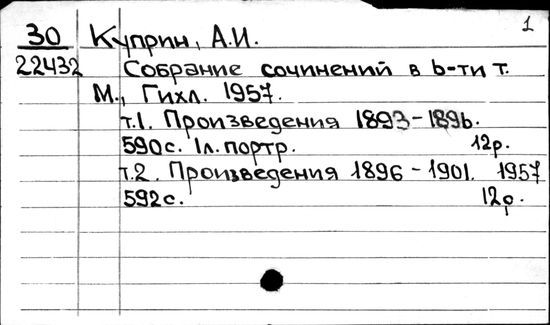 1
30 Куприн, А.И.
22432 Собрание сочинений в 6-ти т.
М., Гихл. 1957.
т.1. Произведения 1893-1896.
590с. 1л. портр. 12р.
т.2. Произведения 1896-1901. 1957
592с. 12р.